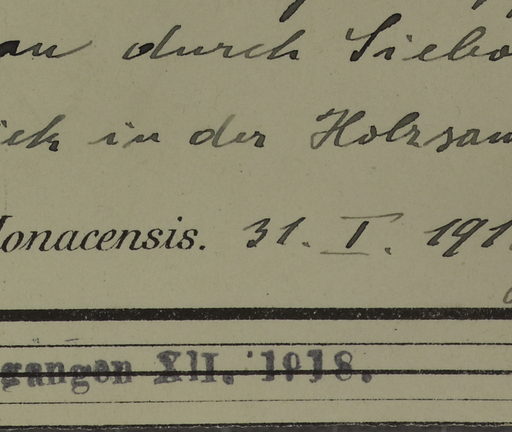 an durch Siebo
ick in der Holzsam
Monacensis. 31. I. 191
gangen XII. 1918.